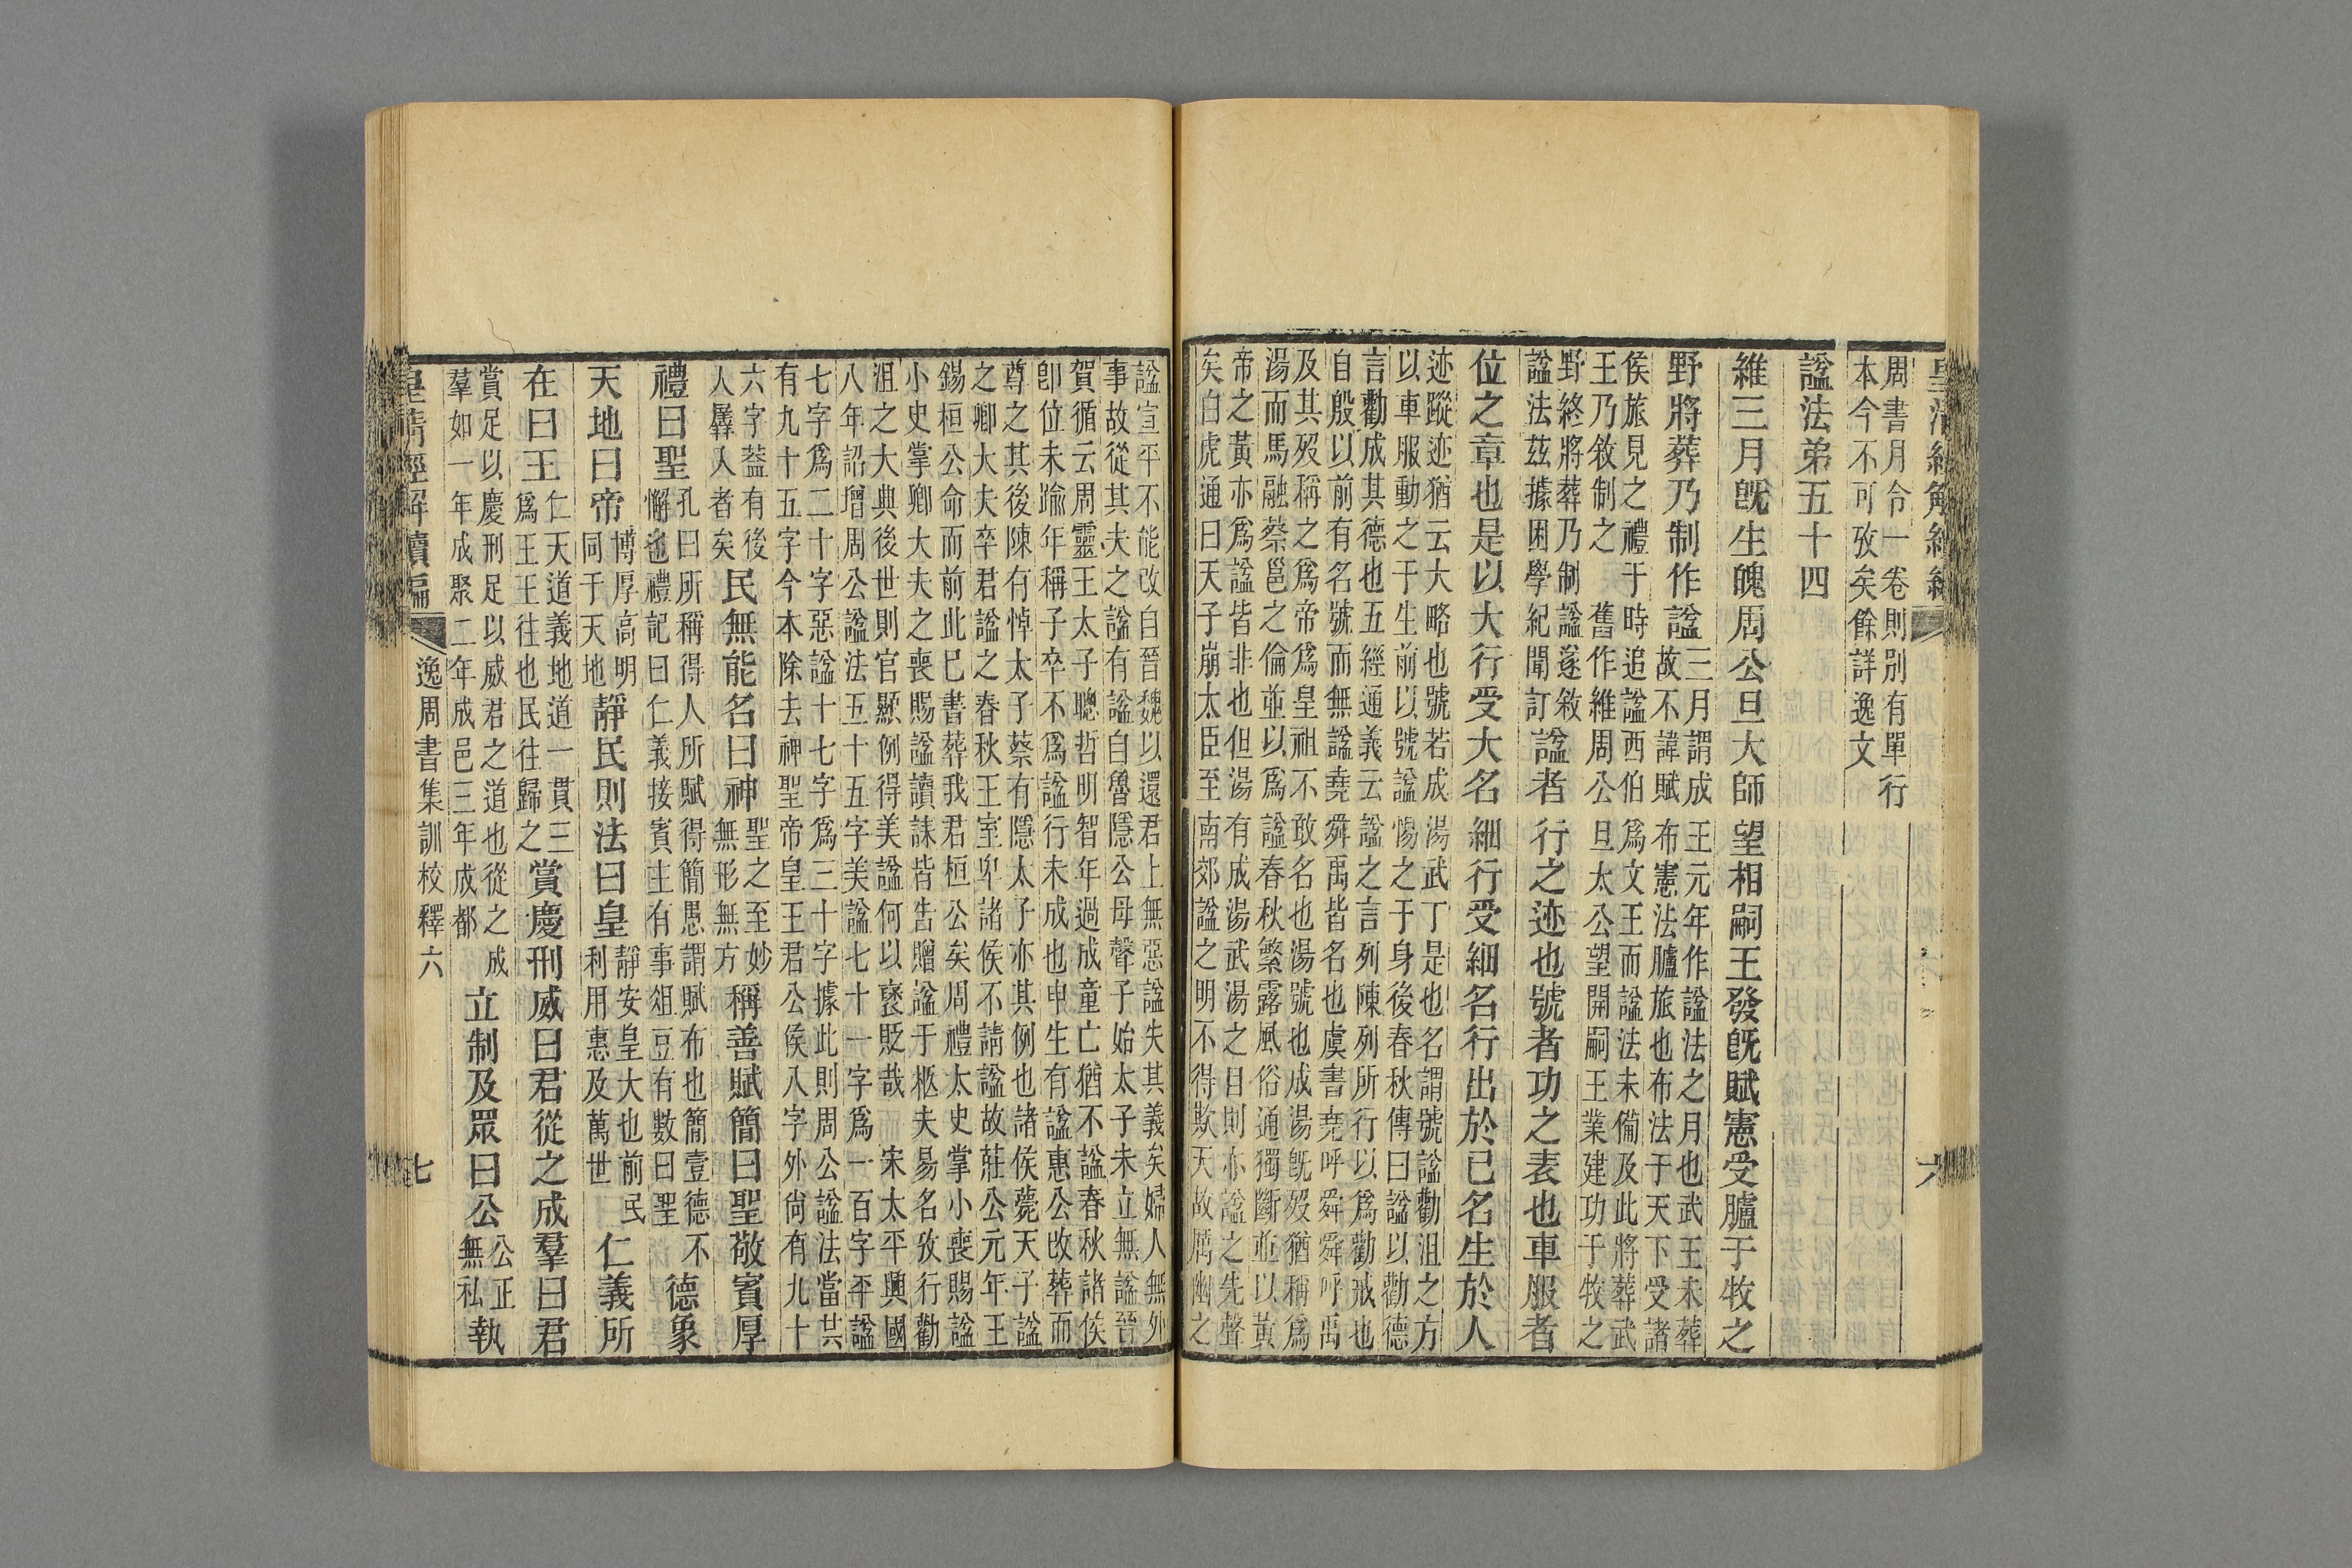 皇清經解續編 六
周書月令一卷則別有單行
本今不可攷矣餘詳逸文
謚法弟五十四
維三月旣生魄周公旦大師望相嗣王發旣賦憲受臚于牧之
野將葬乃制作謚
三月謂成王元年作謚法之月也武王未葬
故不諱賦布憲法臚旅也布法于天下受諸
侯旅見之禮于時追謚西伯爲文王而謚法未備及此將葬武
王乃敘制之 舊作維周公旦太公望開嗣王業建功于牧之
野終將葬乃制謚遂敘
謚法茲據困學紀聞訂
謚者行之迹也號者功之表也車服者
位之章也是以大行受大名細行受細名行出於己名生於人
迹蹤迹猶云大略也號若成湯武丁是也名謂號謚勸沮之方
以車服動之于生前以號謚惕之于身後春秋傳曰謚以勸德
言勸成其德也五經通義云謚之言列陳列所行以爲勸戒也
自殷以前有名號而無謚堯舜禹皆名也虞書堯呼舜舜呼禹
及其歿稱之爲帝爲皇祖不敢名也湯號也成湯旣歿猶稱爲
湯而馬融蔡邕之倫並以爲謚春秋繁露風俗通獨斷並以黃
帝之黃亦爲謚皆非也但湯有成湯武湯之目則亦謚之先聲
矣白虎通曰天子崩太臣至南郊謚之明不得欺天故厲幽之
謚宣平不能改自晉魏以還君上無惡謚失其義矣婦人無外
事故從其夫之謚有謚自魯隱公母聲子始太子未立無謚晉
賀循云周靈王太子聰哲明智年過成童亡猶不謚春秋諸侯
卽位未踰年稱子卒不爲謚行未成也申生有謚惠公改葬而
尊之其後陳有悼太子蔡有隱太子亦其例也諸侯薨天子謚
之卿大夫卒君謚之春秋王室卑諸侯不請謚故莊公元年王
錫桓公命而前此已書葬我君桓公矣周禮太史掌小喪賜謚
小史掌卿大夫之喪賜謚讀誄皆吿贈謚于柩夫易名攷行勸
沮之大典後世則官顯例得美謚何以襃貶哉 宋太平興國
八年詔增周公謚法五十五字美謚七十一字爲一百字平謚
七字爲二十字惡謚十七字爲三十字據此則周公謚法當共
有九十五字今本除去神聖帝皇王君公侯八字外尙有九十
六字葢有後
人羼入者矣
民無能名曰神
聖之至妙
無形無方
稱善賦簡曰聖敬賓厚
禮曰聖
孔曰所稱得人所賦得簡愚謂賦布也簡壹德不
懈也禮記曰仁義接賓主有事俎豆有數曰聖
德象
天地曰帝
博厚高明
同于天地
靜民則法曰皇
靜安皇大也前民
利用惠及萬世
仁義所
在曰王
仁天道義地道一貫三
爲王王往也民往歸之
賞慶刑威曰君從之成羣曰君
賞足以慶刑足以威君之道也從之成
羣如一年成聚二年成邑三年成都
立制及眾曰公
公正
無私
執
皇清經解續編 逸周書集訓校釋六 七